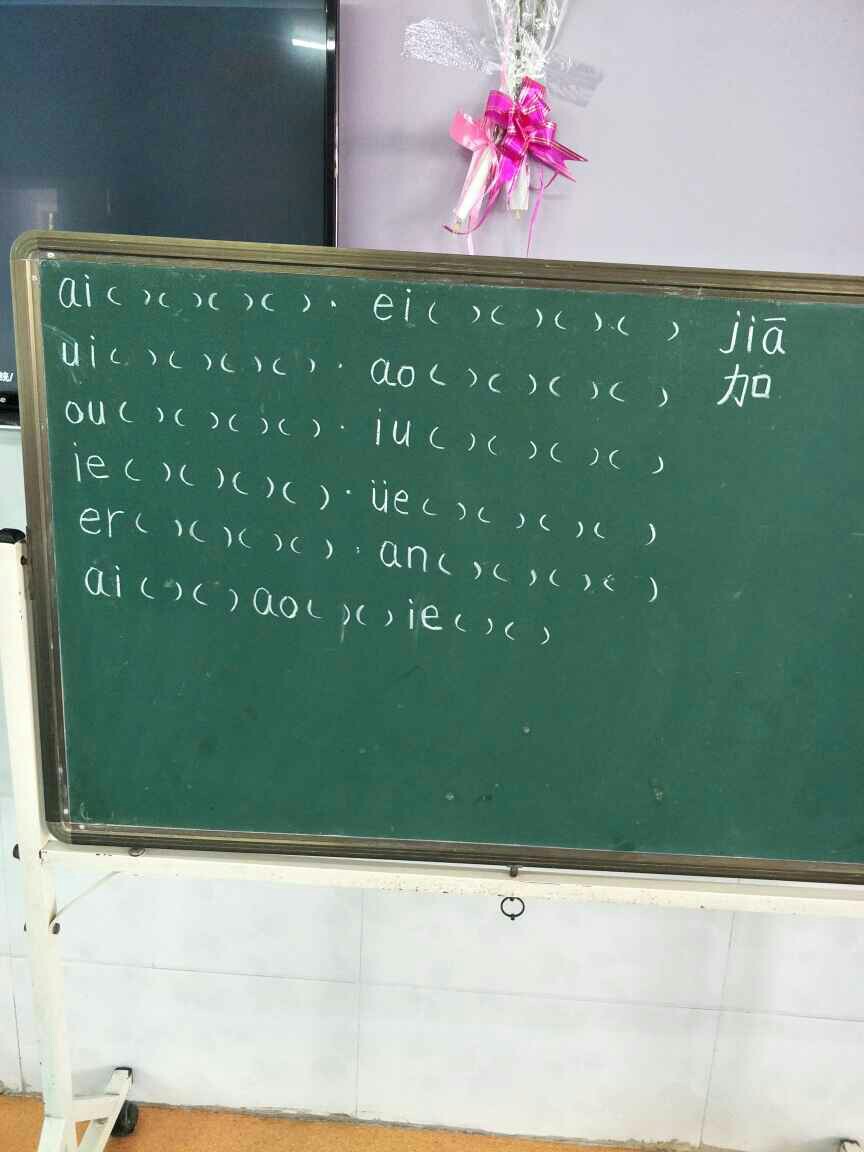 ai( )( )( )( ). ei( )( )( )( ) jiā
ui( )( )( )( ). ao( )( )( )( ) 加
ou( )( )( )( ). iu( )( )( )( )
ie( )( )( )( ). üe( )( )( )( )
er( )( )( )( ). an( )( )( )( )
ai( )( ) ao( )( ) ie( )( )